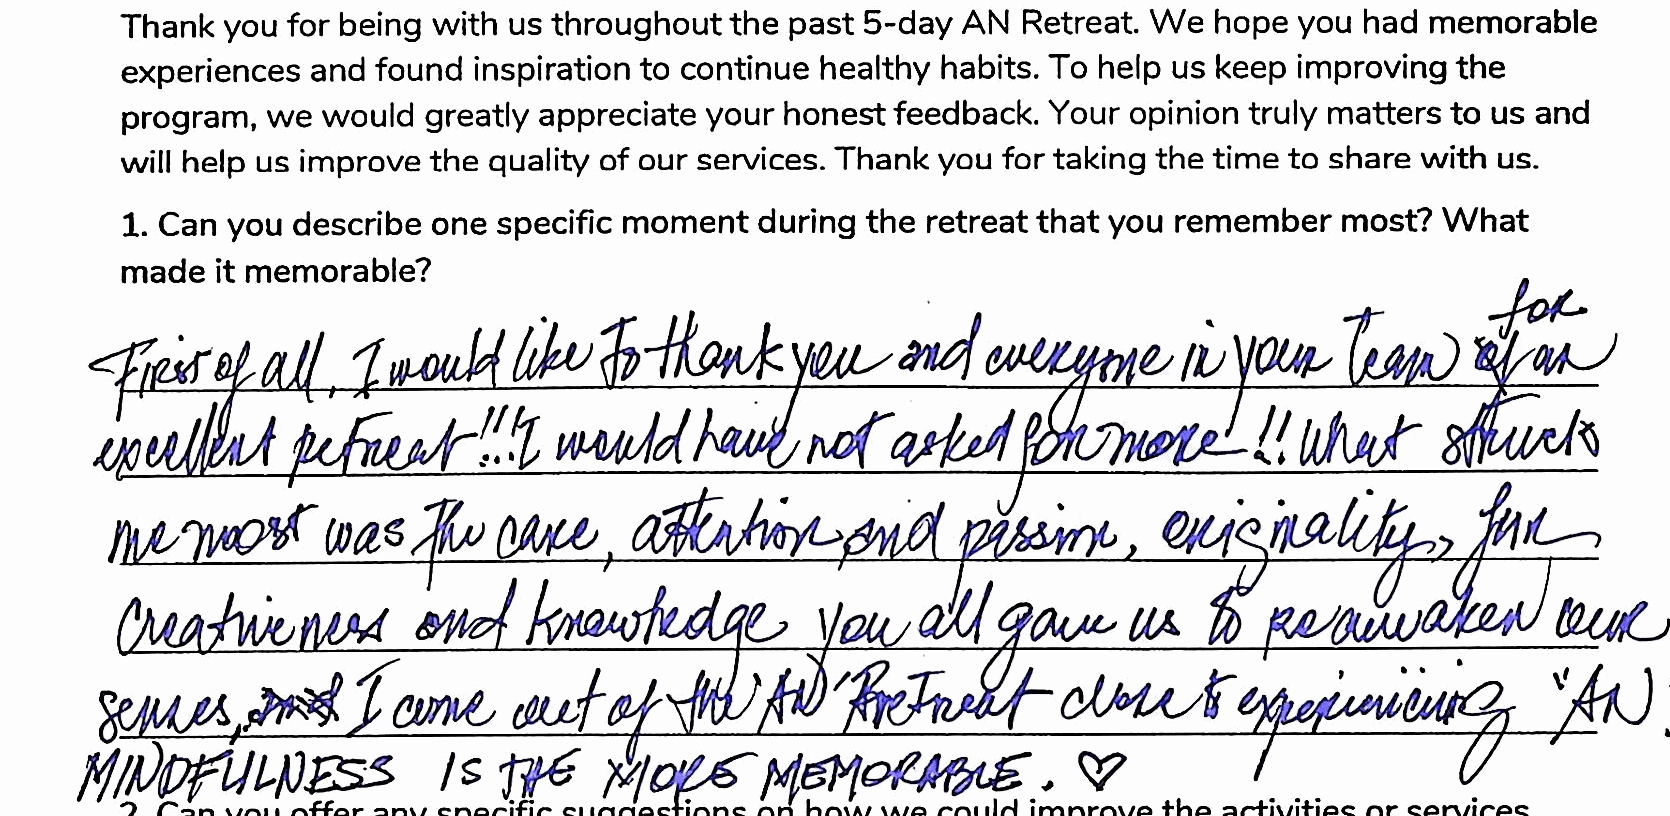 Thank you for being with us throughout the past 5-day AN Retreat. We hope you had memorable
experiences and found inspiration to continue healthy habits. To help us keep improving the
program, we would greatly appreciate your honest feedback. Your opinion truly matters to us and
will help us improve the quality of our services. Thank you for taking the time to share with us.
1. Can you describe one specific moment during the retreat that you remember most? What
made it memorable?
for
First of all, I would like to thank you and everyone in your Team of an
excellent retreat!!! I would have not asked for more!!! What struck
me most was the care, attention and passion, originality, fun
Creativeness and knowledge you all gave us to reawaken our
senses, and I came out of the "AN" Retreat close to experiencing "AN
MINDFULNESS IS THE MORE MEMORABLE. ♡
2. Can you offer any specific suggestions on how we could improve the activities or services